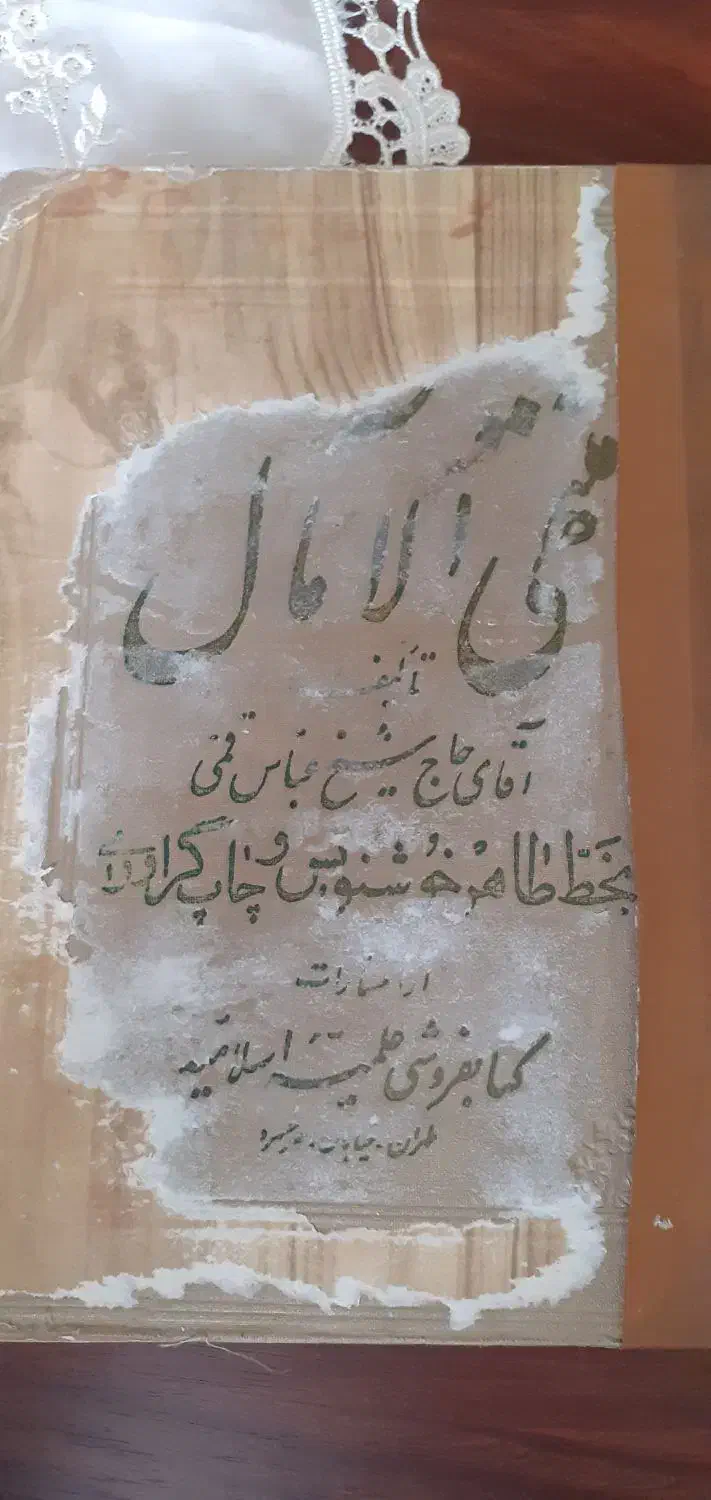 الآمال
تألیف
آقای حاج شیخ عباس قمی
بخط طاهر خوشنویس و چاپ گراوری
کتابفروشی علمیه اسلامیه
طهران - خیابان